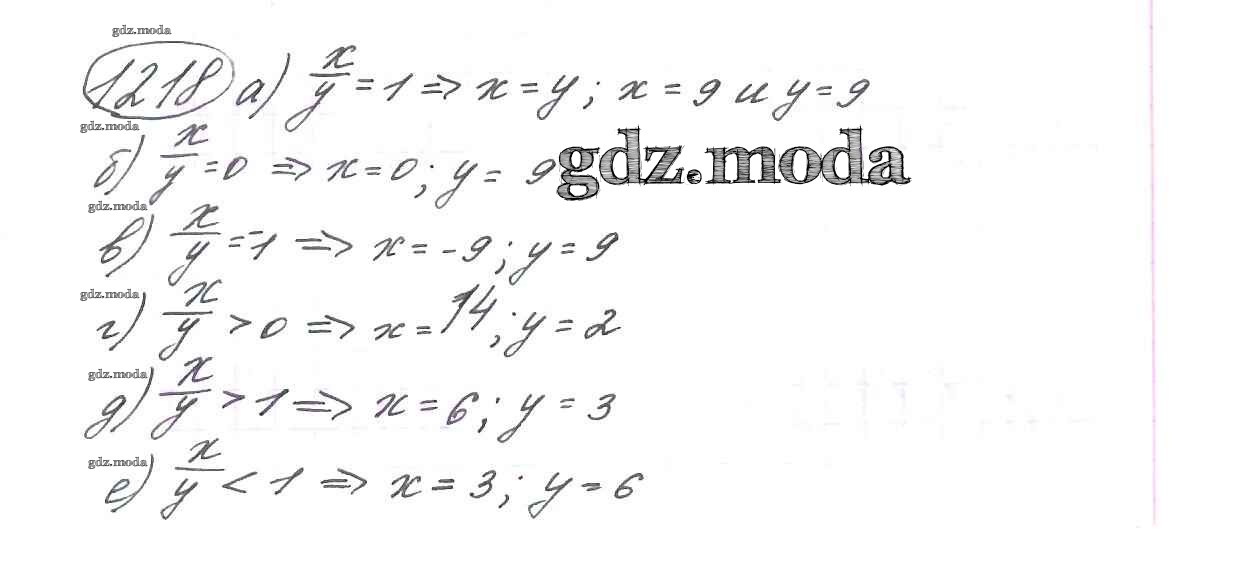 gdz.moda
1218 а) x/y = 1 => x = y; x = 9 и y = 9
gdz.moda
б) x/y = 0 => x = 0; y = 9
gdz.moda
gdz.moda
в) x/y = -1 => x = -9; y = 9
gdz.moda
г) x/y > 0 => x = 14; y = 2
gdz.moda
д) x/y > 1 => x = 6; y = 3
gdz.moda
е) x/y < 1 => x = 3; y = 6